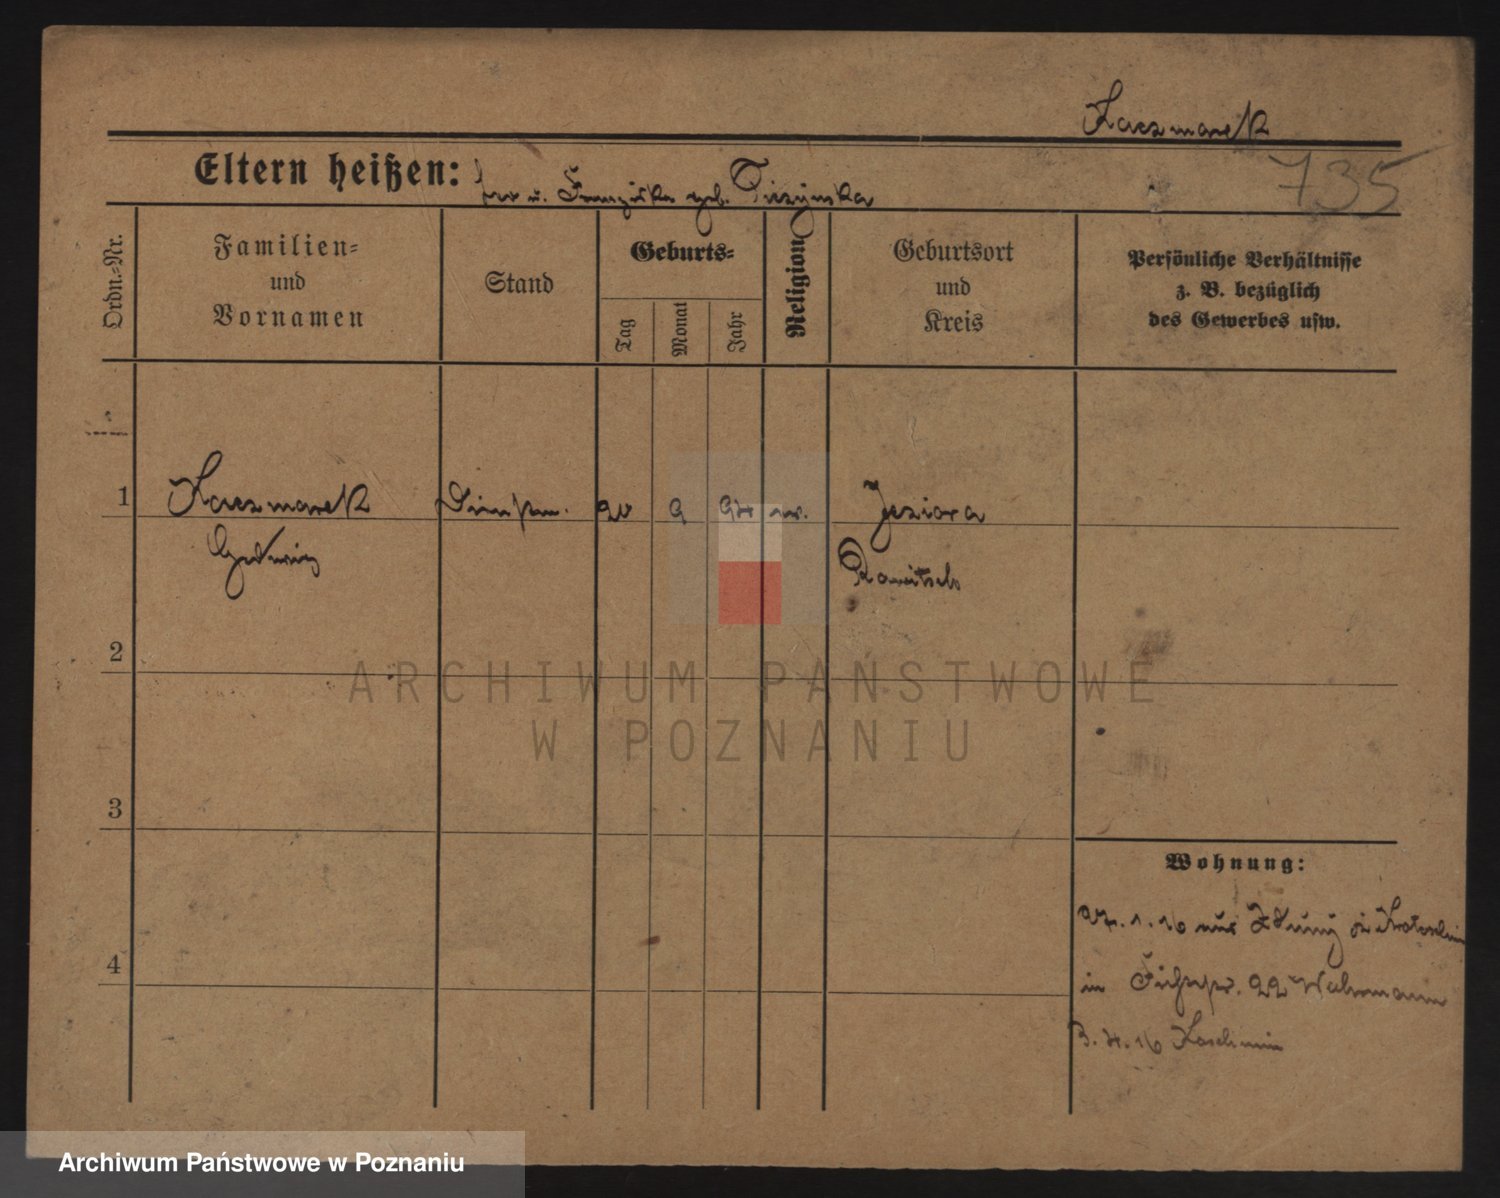 Kaczmarek
735
Eltern heißen: u. Franziska geb.
Ordn.=Nr.
Familien=
und
Vornamen
Stand
Geburts=
Tag
Monat
Jahr
Religion
Geburtsort
und
Kreis
Persönliche Verhältnisse
z. B. bezüglich
des Gewerbes usw.
1 Kaczmarek 9 Jeziora
Hedwig Rawitsch
2
3
4
Wohnung:
1. 16 aus
in 22
3. 4. 16 Koschmin
ARCHIWUM PAŃSTWOWE
W POZNANIU
Archiwum Państwowe w Poznaniu